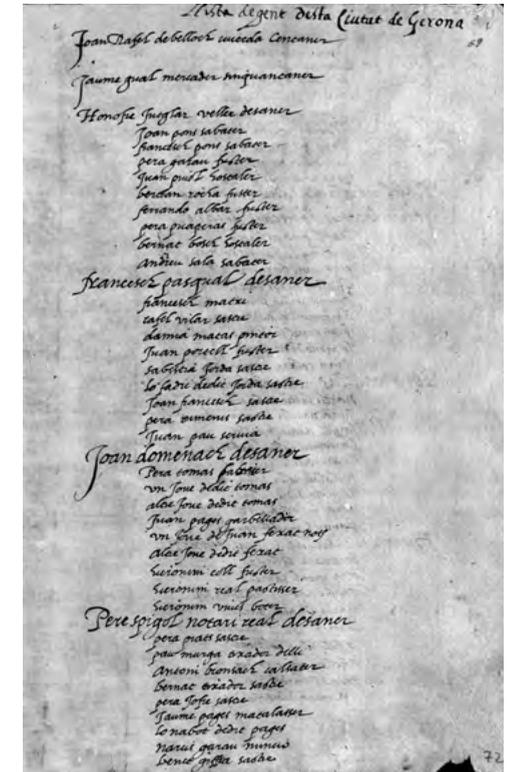 Llista de gent dista Ciutat de Gerona
69
Joan Rafel de belloch Centaner
Jaume gual mercader sinquantaner
Honofre Juglar veller desaner
Joan pons sabater
francesch pons sabater
pera garau fuster
Juan puell hostaler
beltran rocha fuster
ferrando albar fuster
pera puigperas fuster
bernat bosch hostaler
Andreu sala sabater
francesch pasqual desaner
francesch macia
rafel vilar sastre
damia matas pintor
Juan porcell fuster
sabastia Jorda sastre
lo fadri dedit Jorda sastre
Joan francesch sastre
pera ximenis sastre
Juan pau
Joan domenach desaner
Pera tomas
vn Joue dedit tomas
altre Joue dedit tomas
Juan pages garbellador
vn Joue de Juan ferrat
altre Joue dedit ferrat
hieronim coll fuster
hieronim real pastisser
hieronim viues boter
Pere spigol notari real desaner
pera prats sastre
pau murga
Antoni calsater
bernat sastre
pera Jofre sastre
Jaume pages matalasser
lo nabot dedit pages
narcis garau
benet sastre
72